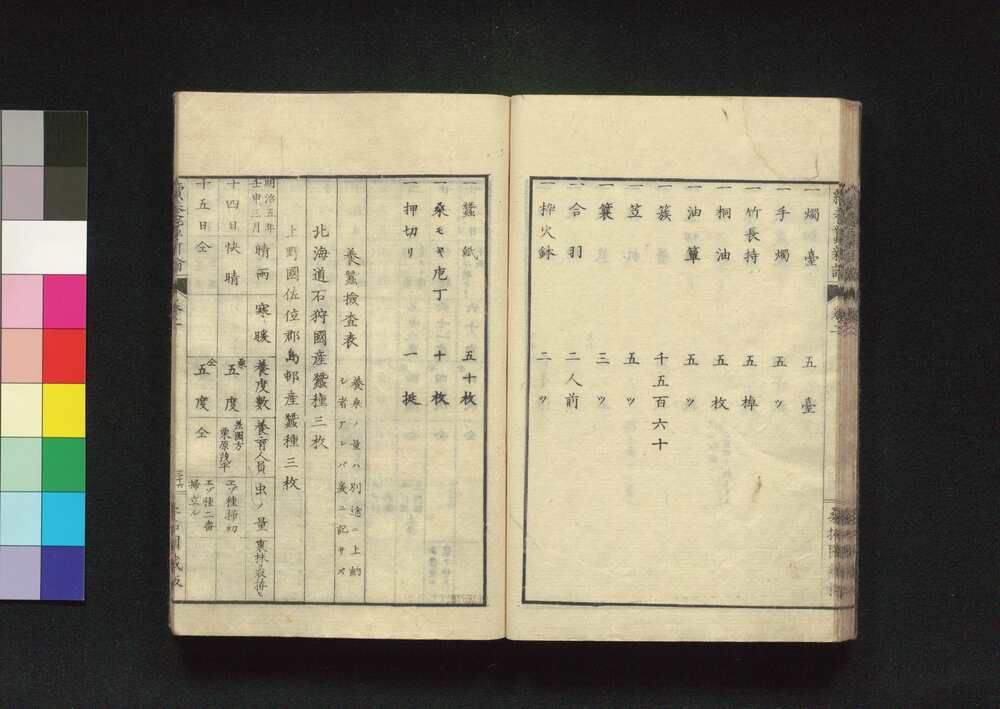 一 燭臺 五臺
一 手燭 五ツ
一 竹長持 五棹
一 桐油 五枚
一 油簞 五ツ
一 簇 千五百六十
一 笠 五ツ
一 簑 三ツ
一 合羽 二人前
一 枠火鉢 二ツ
一 蠶紙 五十枚
一 桑モギ庖丁 十枚
一 押切リ 一挺
養蠶撿査表
養桑ノ量ハ別途ニ上納
シ者アレバ爰ニ記サズ
北海道石狩國産蠶種三枚
上野國佐位郡島邨産蠶種三枚
明治五年
壬申三月
晴雨 寒暖 養度數 養育人員 虫ノ量
十四日 快晴 桑五度 並圖方 栗原茂平 エゾ種掃初
十五日 仝 仝五度 仝 エゾ種二番
掃立ル